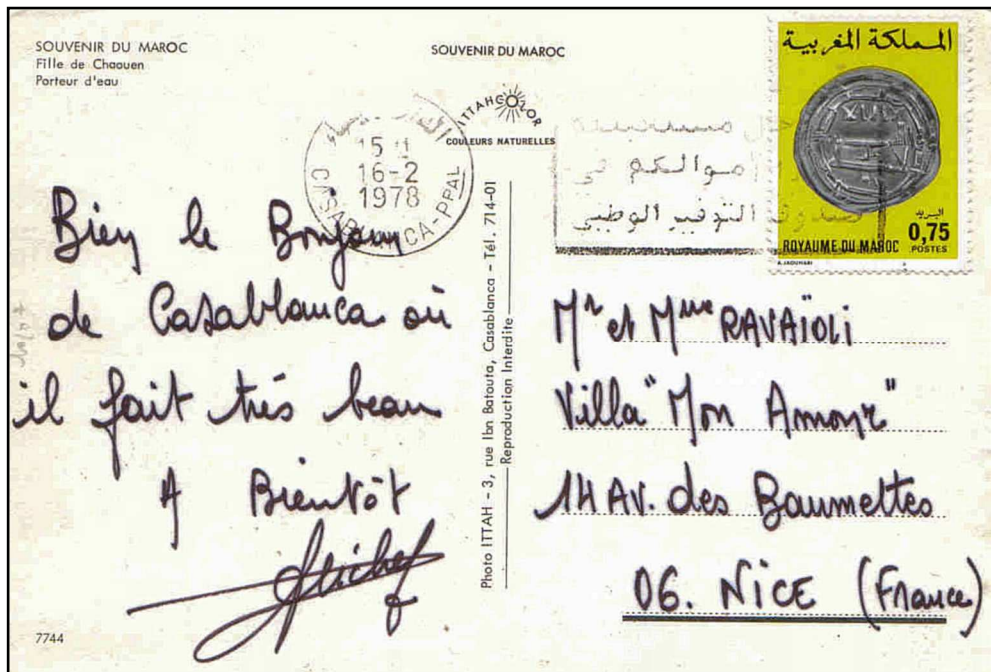 SOUVENIR DU MAROC
Fille de Chaouen
Porteur d'eau
SOUVENIR DU MAROC
ITTAHCOLOR
COULEURS NATURELLES
15
16-2
1978
CASABLANCA-PPAL
أموالكم في
صندوق التوفير الوطني
المملكة المغربية
البريد
0,75
POSTES
ROYAUME DU MAROC
A. JAOUHARI
Bien le Bonjour
de Casablanca où
il fait très beau
A Bientôt
Michel
7744
Photo ITTAH - 3, rue Ibn Batouta, Casablanca - Tél. 714-01
Reproduction Interdite
Mr et Mme RAVAÏOLI
Villa "Mon Amour"
14 AV. des Baumettes
06. NICE (France)